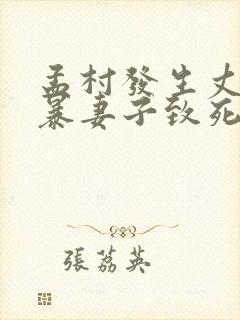 孟村發生丈
暴妻子致死
張荔英